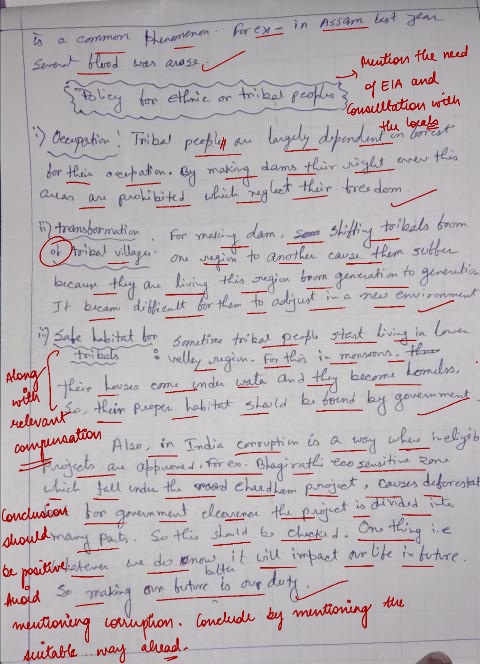 is a common Phenomenon. For ex - in Assam last year
Several blood was arose.
Policy for ethnic or tribal peoples
Mention the need
of EIA and
Consultation with
the locals
i) Occupation: Tribal people are largely dependent in forest
for their occupation. By making dams their right over this
areas are prohibited which neglect their freedom.
ii) transformation
of tribal villages.
For making dam, shifting tribals from
one region to another cause them suffer
because they are living this region from generation to generation
It becam difficult for them to adjust in a new environment
iii) Safe habitat for
tribals :
Sometime tribal people start living in lower
valley region. For this in monsoons,
their houses come under wata and they become homeless.
So, their proper habitat should be found by government.
Along
with
relevant
compensation
Also, in India corruption is a way where ineligib
Projects are approved. For ex. Bhagirathi eco sensitive zone
which fall under the Chardham project, causes deforestat
for government clearence the project is divided into
many parts. So this should be checked. One thing i.e
whatever we do know it will impact our life in future.
So making our future better is our duty.
Conclusion
should
be positive
Avoid
mentioning corruption. Conclude by mentioning the
suitable way ahead.